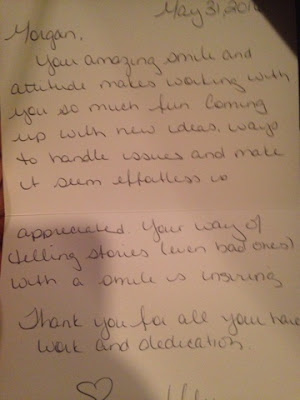 May 31, 201
Morgan,
Your amazing smile and
attitude makes working with
you so much fun Coming
up with new ideas, ways
to handle issues and make
it seem effortless is
appreciated. Your way of
telling stories (even bad ones)
with a smile is inspiring
Thank you for all your hard
work and dedication.